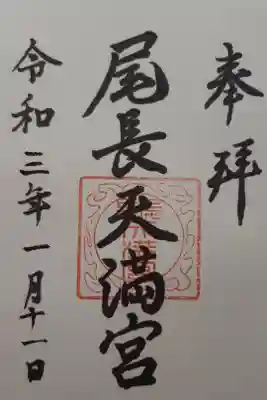 奉拝
尾長天満宮
令和三年一月十一日